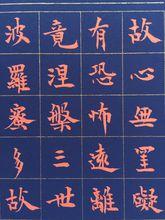 故心無罣礙
有恐怖遠離
竟涅槃三世
波羅蜜多故